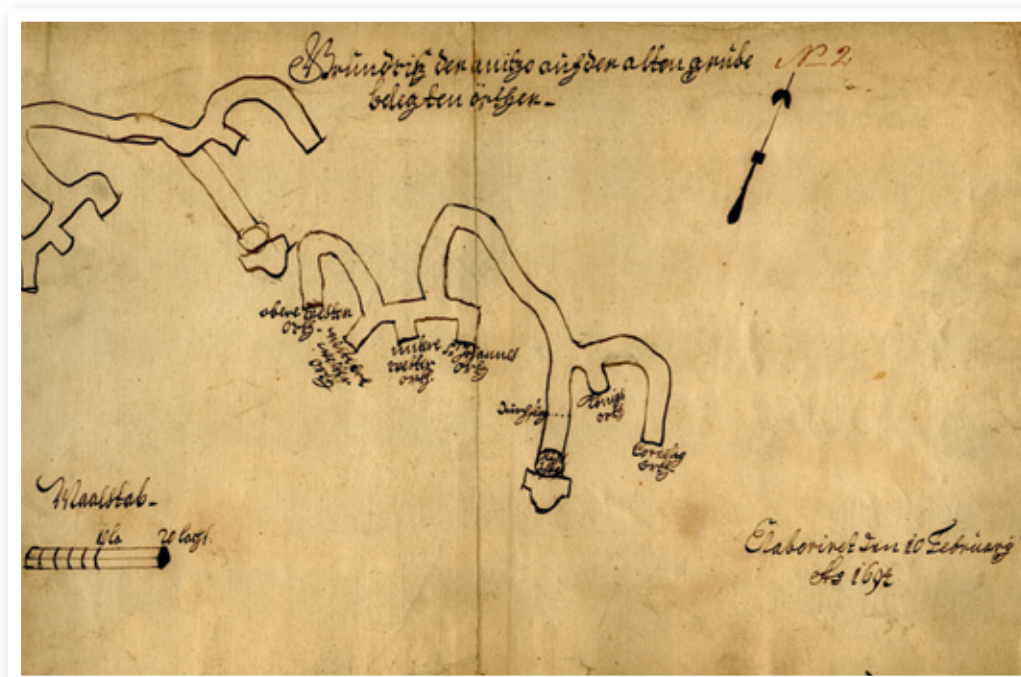 Grundriß der anitzo auf der alten grube
belegten örther
No 2
obere wester
Orth
untere
wester
orth
Johannes
Orth
Königs
orth
Cornelig
Orth
Maasstab
10 la
20 lacht.
Elaboriret den 10 February
Ao 1694